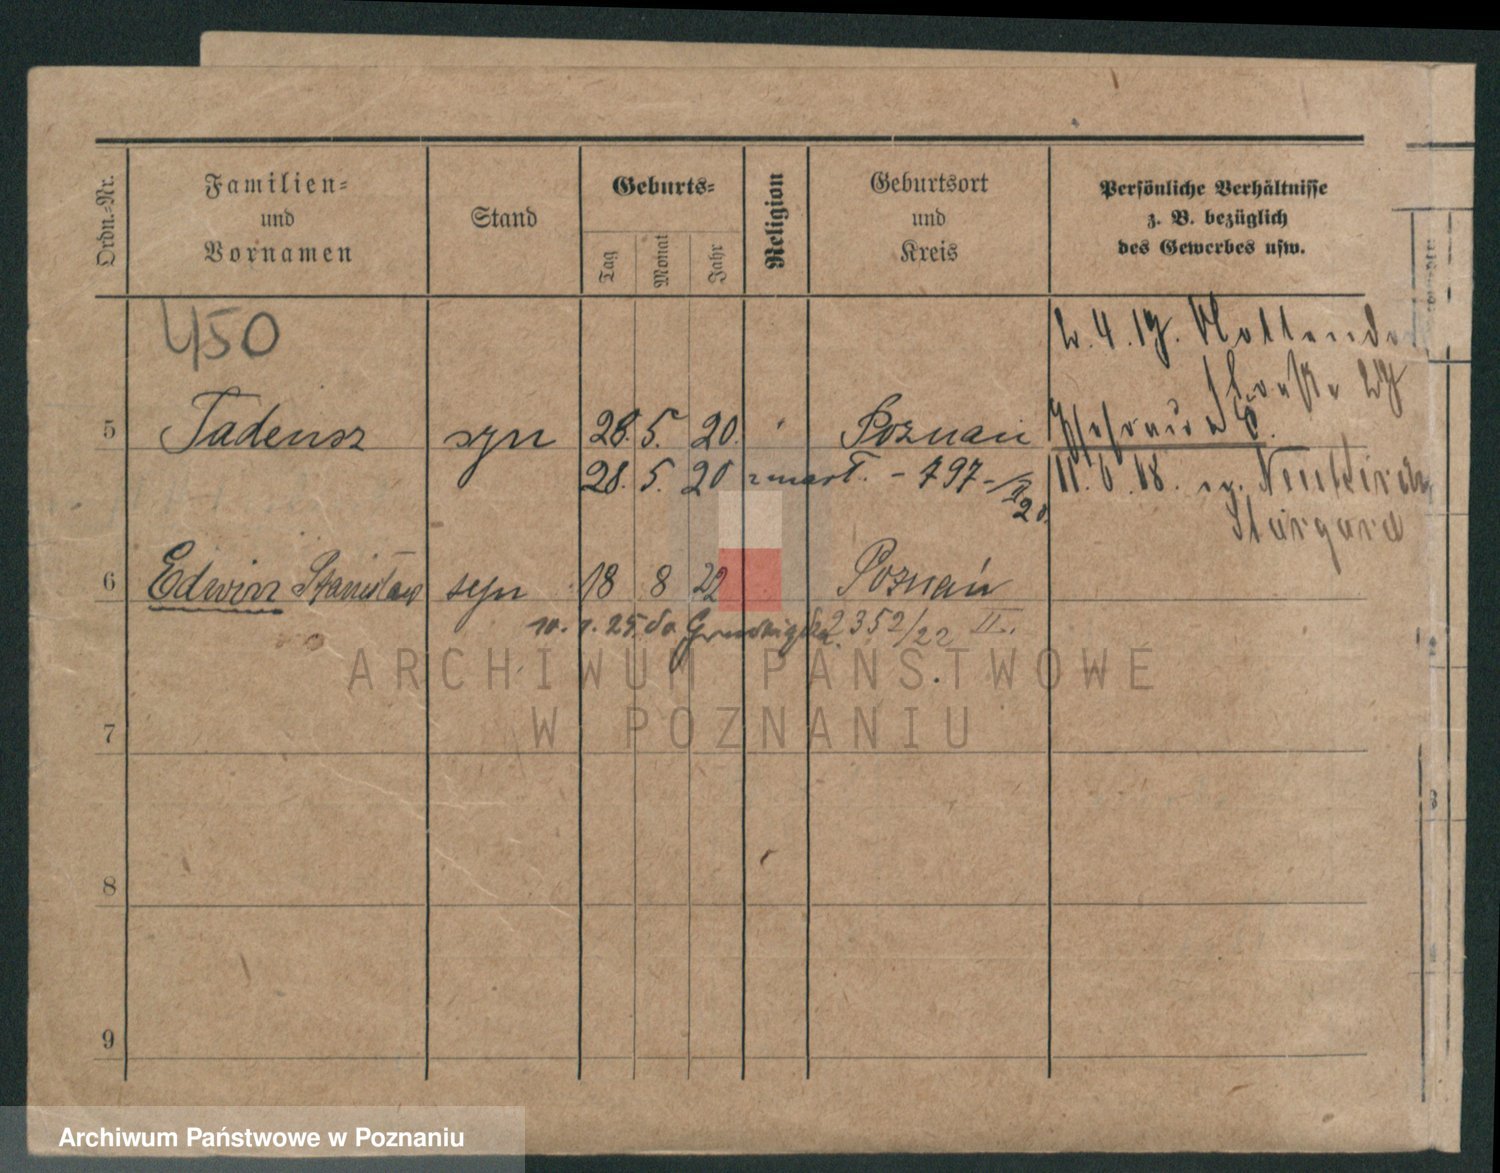 Ordn.-Nr.
Familien-
und
Vornamen
Stand
Geburts-
Tag
Monat
Jahr
Religion
Geburtsort
und
Kreis
Persönliche Verhältnisse
z. B. bezüglich
des Gewerbes usw.
450
5 Tadeusz syn 28. 5. 20. Poznań
28. 5. 20 zmarł. - 797 -
11. 6. 18. Neukirch
Stargard
6 Edwin Stanisław syn 18 8 22 Poznań
10. 1. 25. do 2352/22 II.
ARCHIWUM PAŃSTWOWE
W POZNANIU
7
8
9
Archiwum Państwowe w Poznaniu